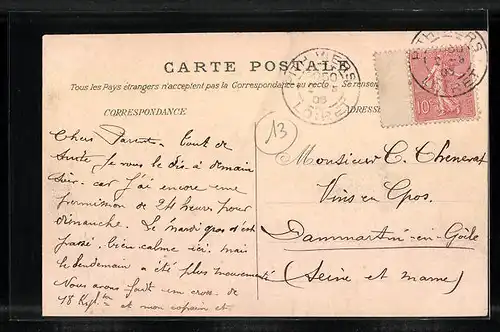 CARTE POSTALE
Tous les Pays étrangers n'acceptent pas la Correspondance au recto Se renseigner
CORRESPONDANCE
ADRESSE
PITHIVIERS
LOIRET
10c
13
Chers Parents. Tout de
suite je vous le dis à demain
soir car j'ai encore une
permission de 24 heures pour
dimanche. Le mardi gras s'est
passé bien calme ici, mais
le lendemain a été plus mouvementé
Nous avons fait un cross de
18 et mon copain et
Monsieur C. Thenerat
Vins en Gros.
Dammartin-en-Goële
(Seine et marne)